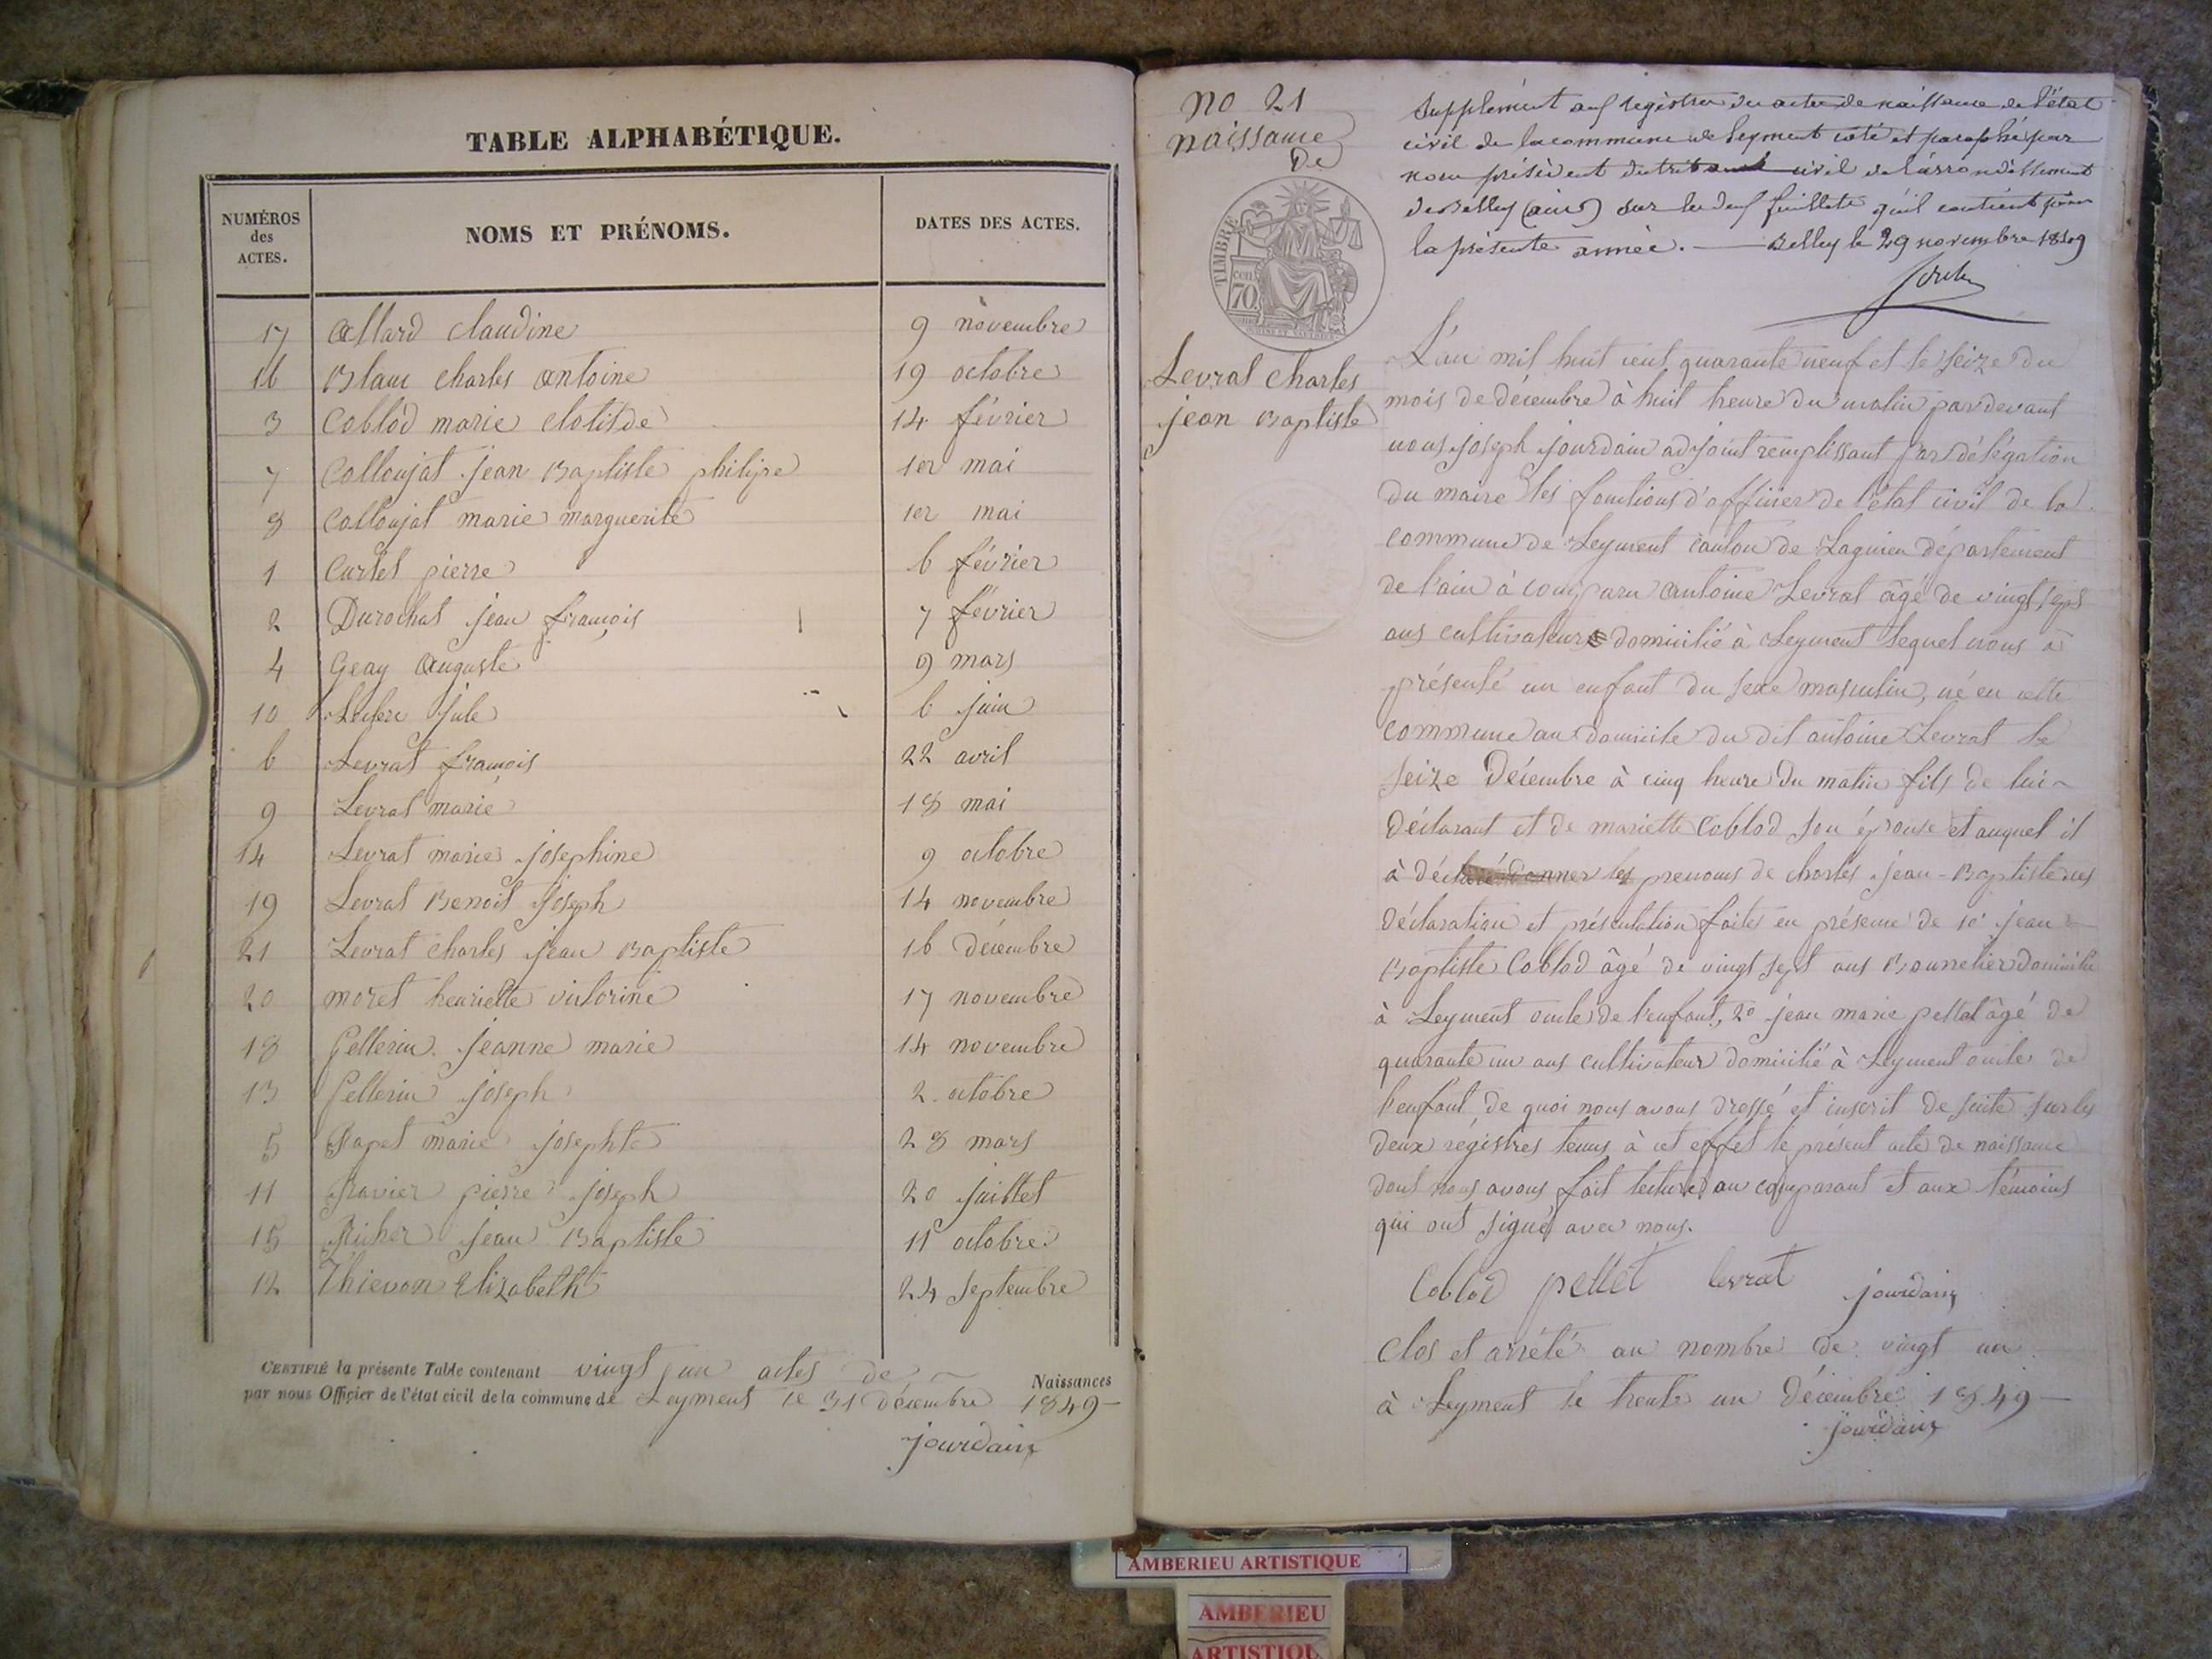 TABLE ALPHABÉTIQUE.
NUMÉROS des ACTES. NOMS ET PRÉNOMS. DATES DES ACTES.
17 Allard claudine 9 novembre
16 Blanc charles antoine 19 octobre
3 Coblod marie clotilde 14 février
7 Colloujat jean Baptiste philipe 1er mai
8 Colloujat marie marguerite 1er mai
1 Curtet pierre 6 février
2 Durochat jean françois 7 février
4 Geay auguste 9 mars
10 jule 6 juin
6 Levrat françois 22 avril
9 Levrat marie 18 mai
14 Levrat marie josephine 9 octobre
19 Levrat Benoit joseph 14 novembre
21 Levrat charles jean Baptiste 16 décembre
20 moret henriette victorine 17 novembre
18 Pellerin jeanne marie 14 novembre
13 Pellerin joseph 2 octobre
5 Rapet marie josephte 28 mars
11 Ravier pierre joseph 20 juillet
15 Richer jean Baptiste 11 octobre
12 Thievon Elizabeth 24 septembre
CERTIFIÉ la présente Table contenant vingt un actes de Naissances
par nous Officier de l'état civil de la commune de Leyment le 31 décembre 1849
jourdain
no 21
naissance
De
TIMBRE
70
Levrat charles
jean Baptiste
Supplément aux registres des actes de naissance de l'état
civil de la commune de Leyment coté et paraphé par
nous président du tribunal civil de l'arrondissement
de Belley (ain) sur les deux feuillets qu'il contient pour
la présente année. — Belley le 29 novembre 1849
L'an mil huit cent quarante neuf et le seize du
mois de décembre à huit heure du matin pardevant
nous joseph jourdain adjoint remplissant par délégation
du maire les fonctions d'officier de l'état civil de la
commune de Leyment canton de Lagnieu département
de l'ain à comparu antoine Levrat âgé de vingt sept
ans cultivateur domicilié à Leyment lequel nous à
présenté un enfant du sexe masculin, né en cette
commune au domicile du dit antoine Levrat le
seize Décembre à cinq heure du matin fils de lui
déclarant et de mariette Coblod son épouse et auquel il
à déclaré donner les prenoms de charles jean-Baptiste ces
déclaration et présentation faites en présence de 1o jean
Baptiste Coblod âgé de vingt sept ans Bourrelier domicilié
à Leyment oncle de l'enfant, 2o jean marie pellet âgé de
quarante un ans cultivateur domicilié à Leyment oncle de
l'enfant de quoi nous avons dressé et inscrit de suite sur les
deux régistres tenus à cet effet le présent acte de naissance
dont nous avons fait lecture au comparant et aux témoins
qui ont signé avec nous.
Coblod pellet levrat jourdain
Clos et arrêté au nombre de vingt un
à Leyment le trente un décembre 1849
jourdain
AMBERIEU ARTISTIQUE
AMBERIEU
ARTISTIQU